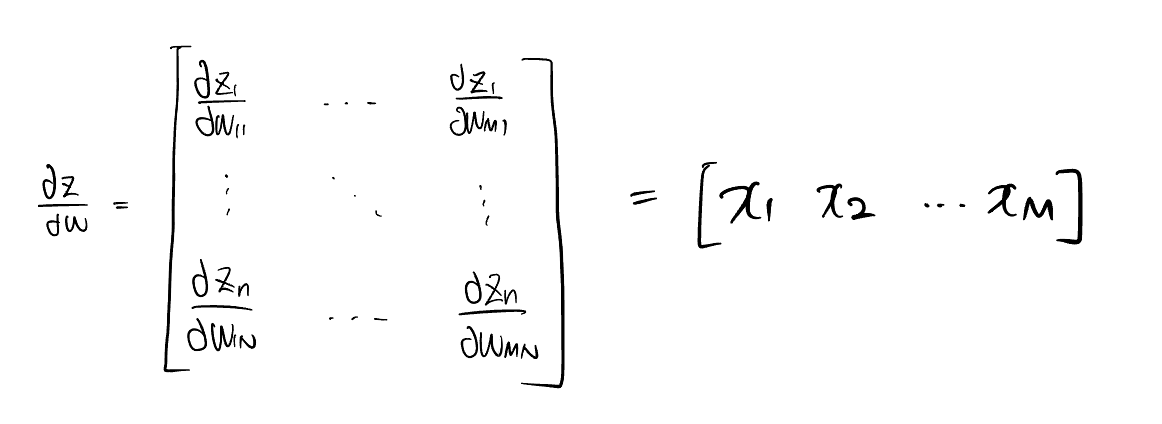 ∂z/∂w = [ ∂z₁/∂w₁₁ ... ∂z₁/∂w_M1
⋮ ⋱ ⋮
∂z_n/∂w_1N ... ∂z_n/∂w_MN ] = [x₁ x₂ ... x_M]